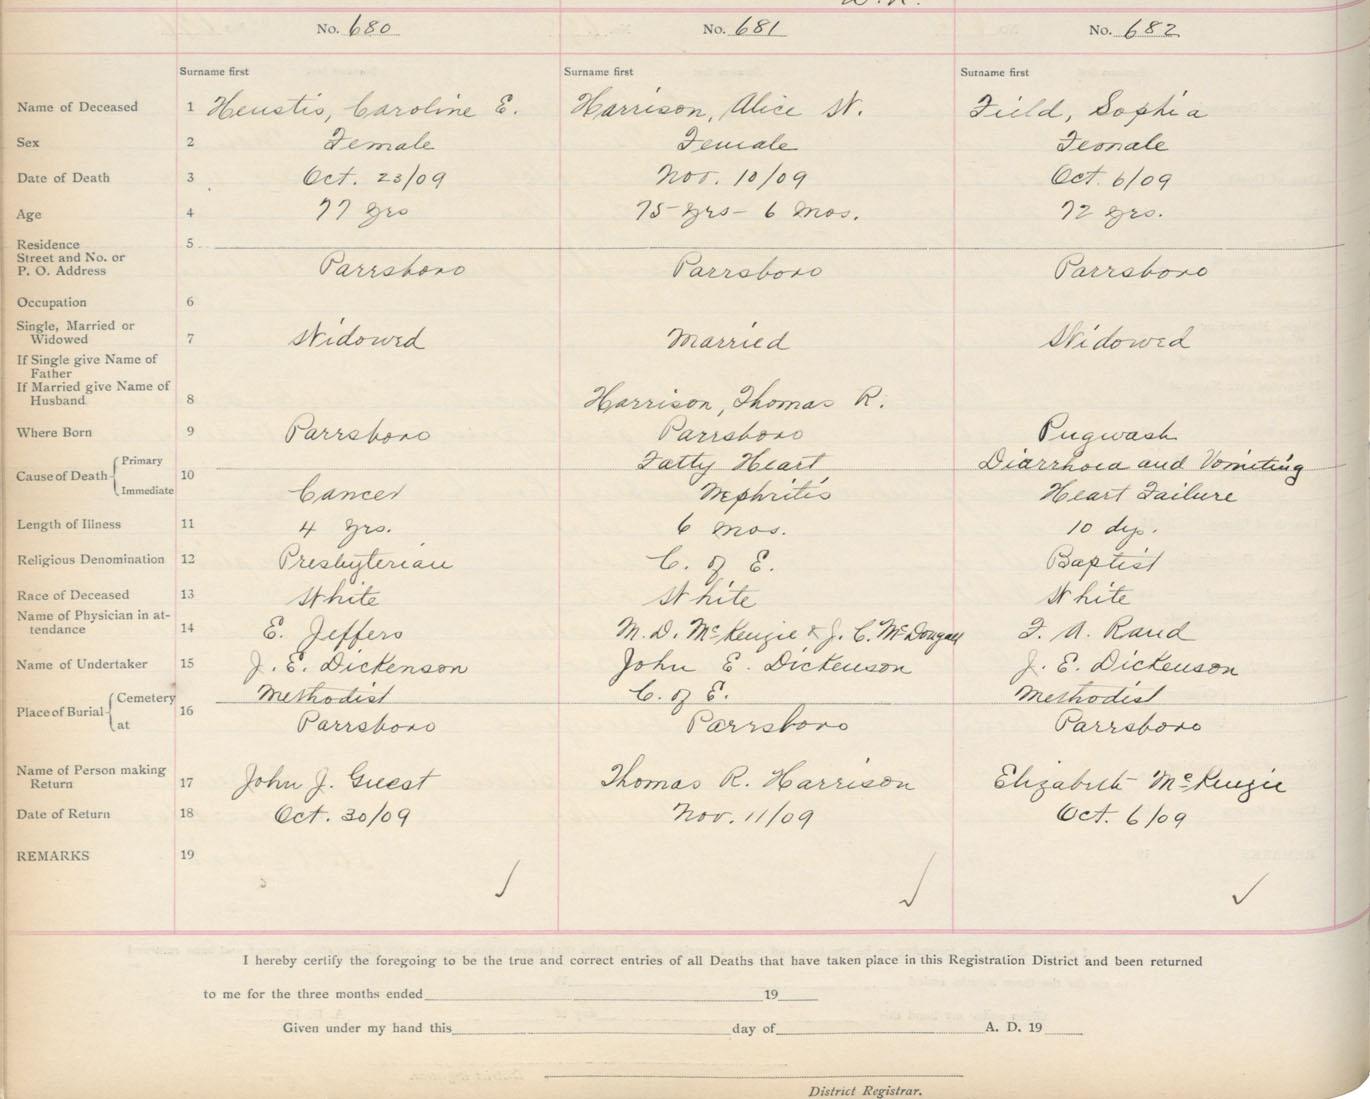 No. 680 No. 681 No. 682
Surname first Surname first Surname first
Name of Deceased 1 Heustis, Caroline E. Harrison, Alice W. Field, Sophia
Sex 2 Female Female Female
Date of Death 3 Oct. 23/09 Nov. 10/09 Oct. 6/09
Age 4 77 yrs 75 yrs - 6 mos. 72 yrs.
Residence 5
Street and No. or
P. O. Address Parrsboro Parrsboro Parrsboro
Occupation 6
Single, Married or
Widowed 7 Widowed Married Widowed
If Single give Name of
Father
If Married give Name of
Husband 8 Harrison, Thomas R.
Where Born 9 Parrsboro Parrsboro Pugwash
Primary Fatty Heart Diarrhoea and Vomiting
Cause of Death 10
Immediate Cancer Nephritis Heart Failure
Length of Illness 11 4 yrs. 6 mos. 10 dys.
Religious Denomination 12 Presbyterian C. of E. Baptist
Race of Deceased 13 White White White
Name of Physician in at-
tendance 14 E. Jeffers M. D. McKenzie & J. C. McDougall F. A. Rand
Name of Undertaker 15 J. E. Dickenson John E. Dickenson J. E. Dickenson
Cemetery Methodist C. of E. Methodist
Place of Burial 16
at Parrsboro Parrsboro Parrsboro
Name of Person making
Return 17 John J. Guest Thomas R. Harrison Elizabeth McKenzie
Date of Return 18 Oct. 30/09 Nov. 11/09 Oct. 6/09
REMARKS 19
I hereby certify the foregoing to be the true and correct entries of all Deaths that have taken place in this Registration District and been returned
to me for the three months ended 19
Given under my hand this day of A. D. 19
District Registrar.